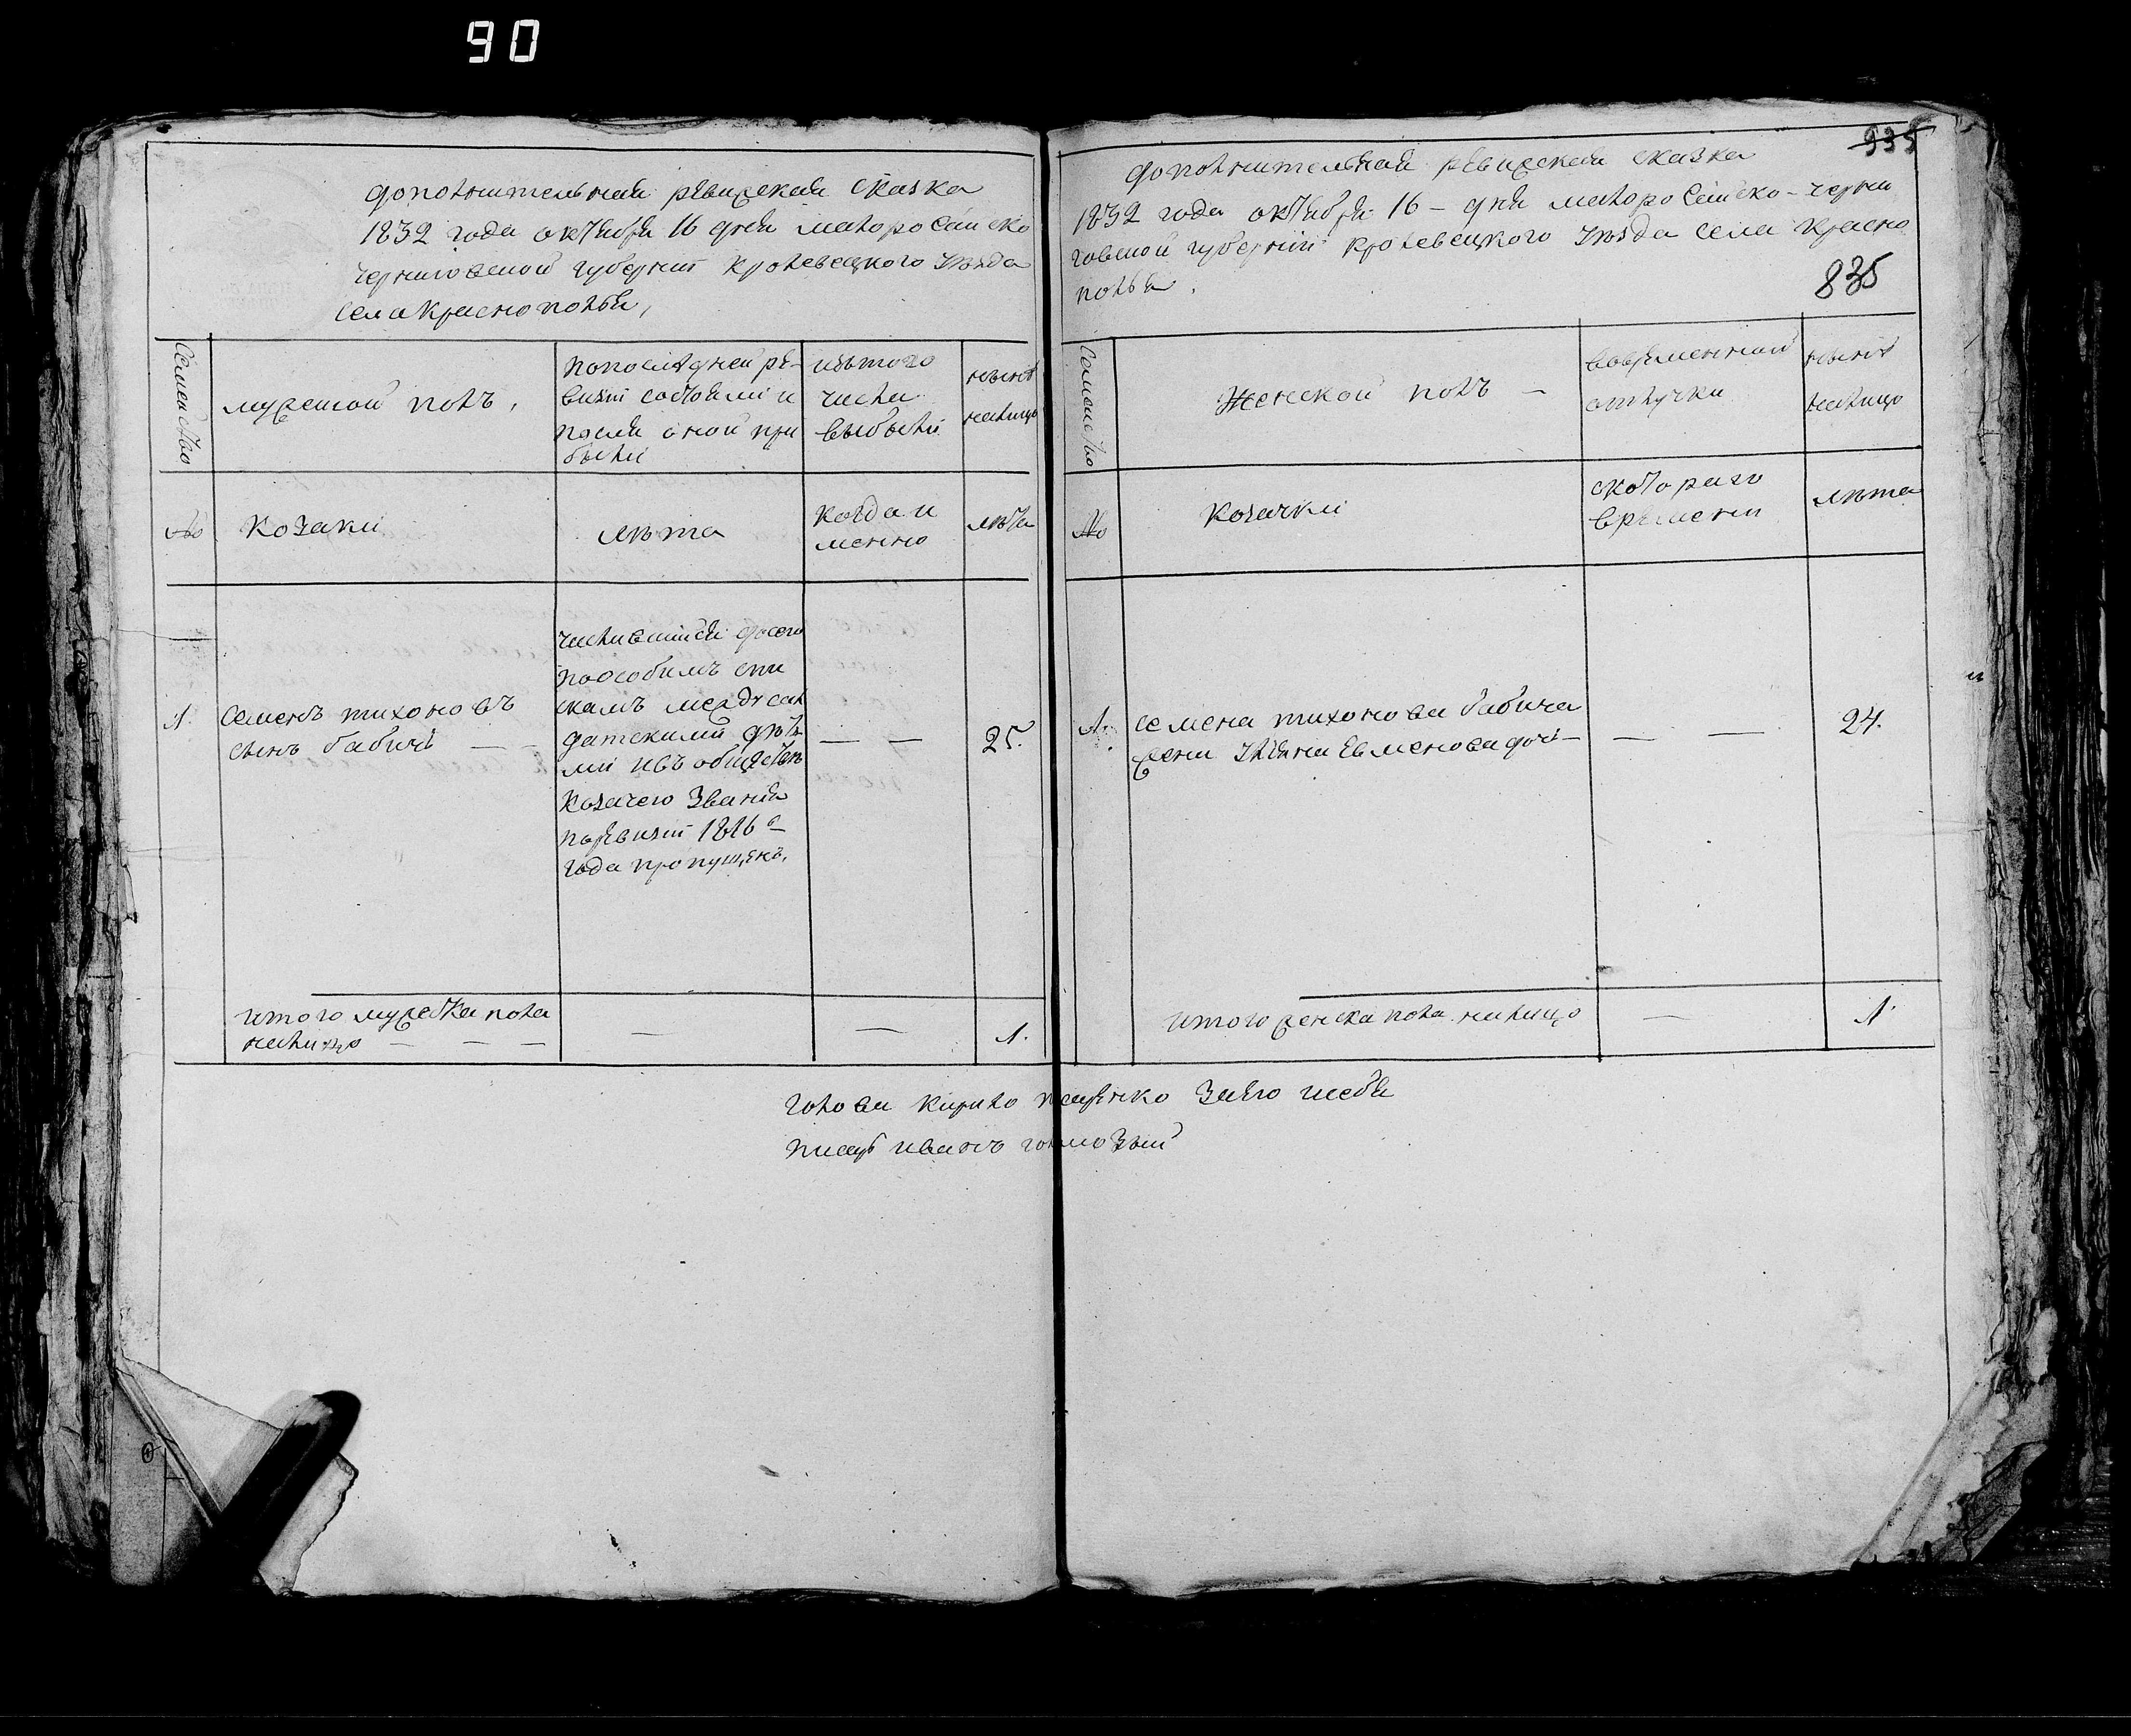 90
дополнительная ревизская сказка
1832 года октября 16 дня малоросійско
черниговской губерніи кролевецкого уѣзда
села Краснополья,
Семейство
мужеской полъ,
попоследней ре-
визіи состояли и
после оной при
были
изътого
числа
выбыли
нынѣ
налицо
№
козаки
лѣта
когда и
менно
лѣта
1.
семенъ тихоновъ
сынъ бабичь — —
числившійся досего
поособымъ спи
скамъ между сол
датскими дѣть
ми изъ общества
козачего званія
паревизіи 1816 г
года пропущенъ,
— —
25.
итого мужеска пола
налицо — — —
—
—
1.
935
дополнительная ревизская сказка
1832 года октября 16 – дня малоросійско – черни
говской губерніи кролевецкого уѣзда села Красно
полья.
835
Семейство
Женской полъ —
вовременной
отлучки
нынѣ
налицо
№
козачки
скотораго
времени
лѣта
1.
семена тихонова бабича
жена Ульяна Евменова дочь —
— —
24.
итого женска пола налицо
—
1.
голова кирило
писарь иванъ